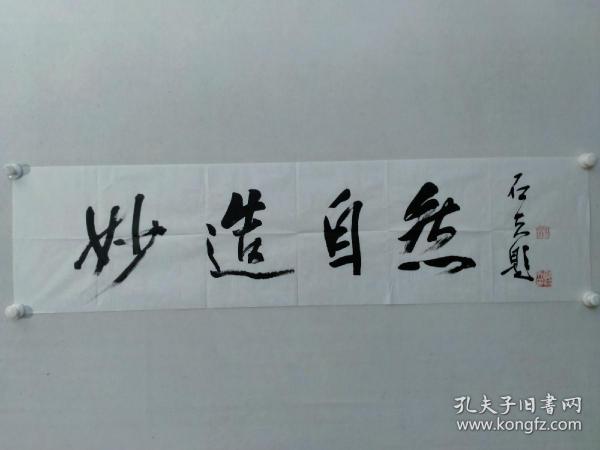 妙造自然
孔夫子旧书网
www.kongfz.com